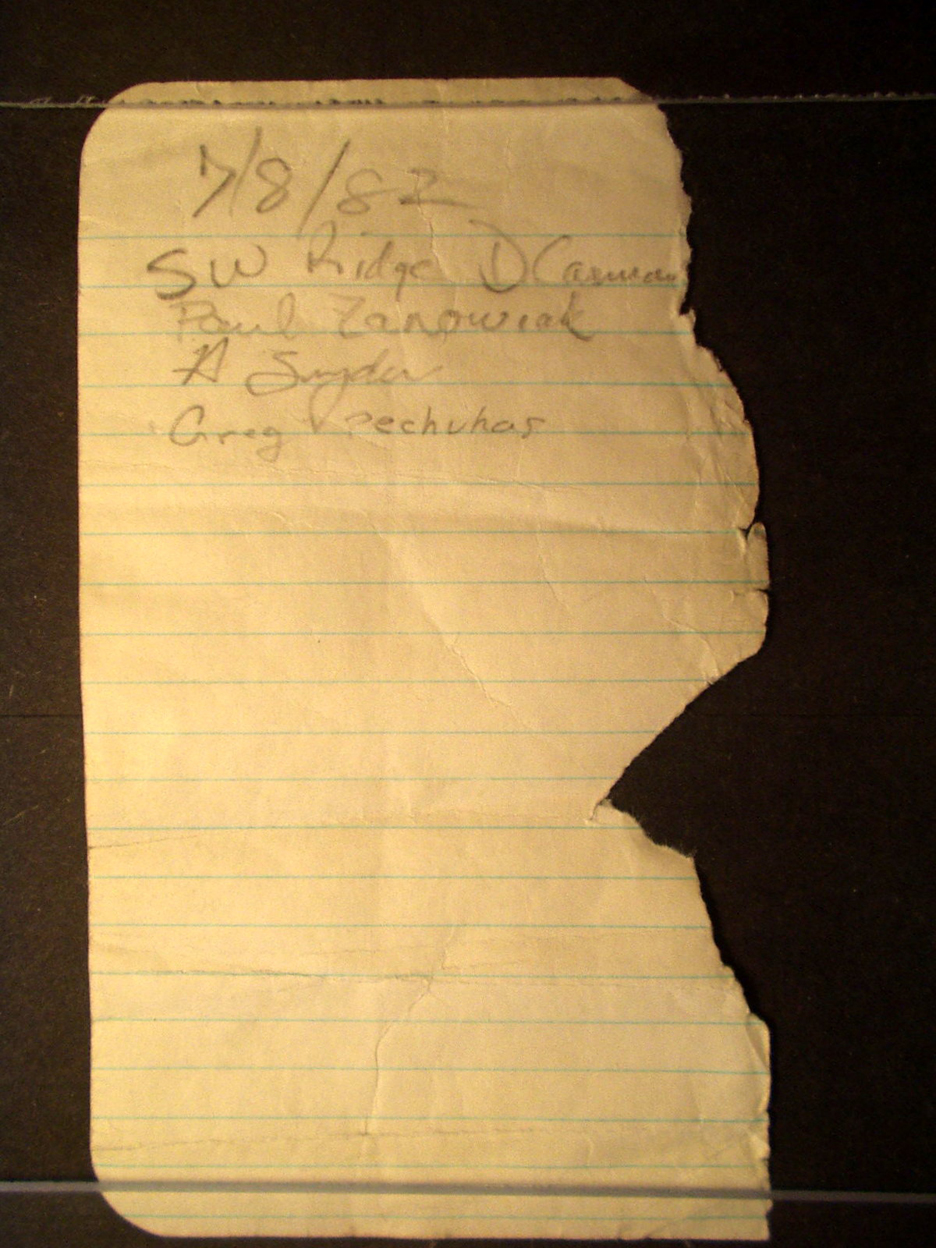 7/8/82
SW Ridge D
Paul Zanowiak
A Snyder
Greg Pechuhas